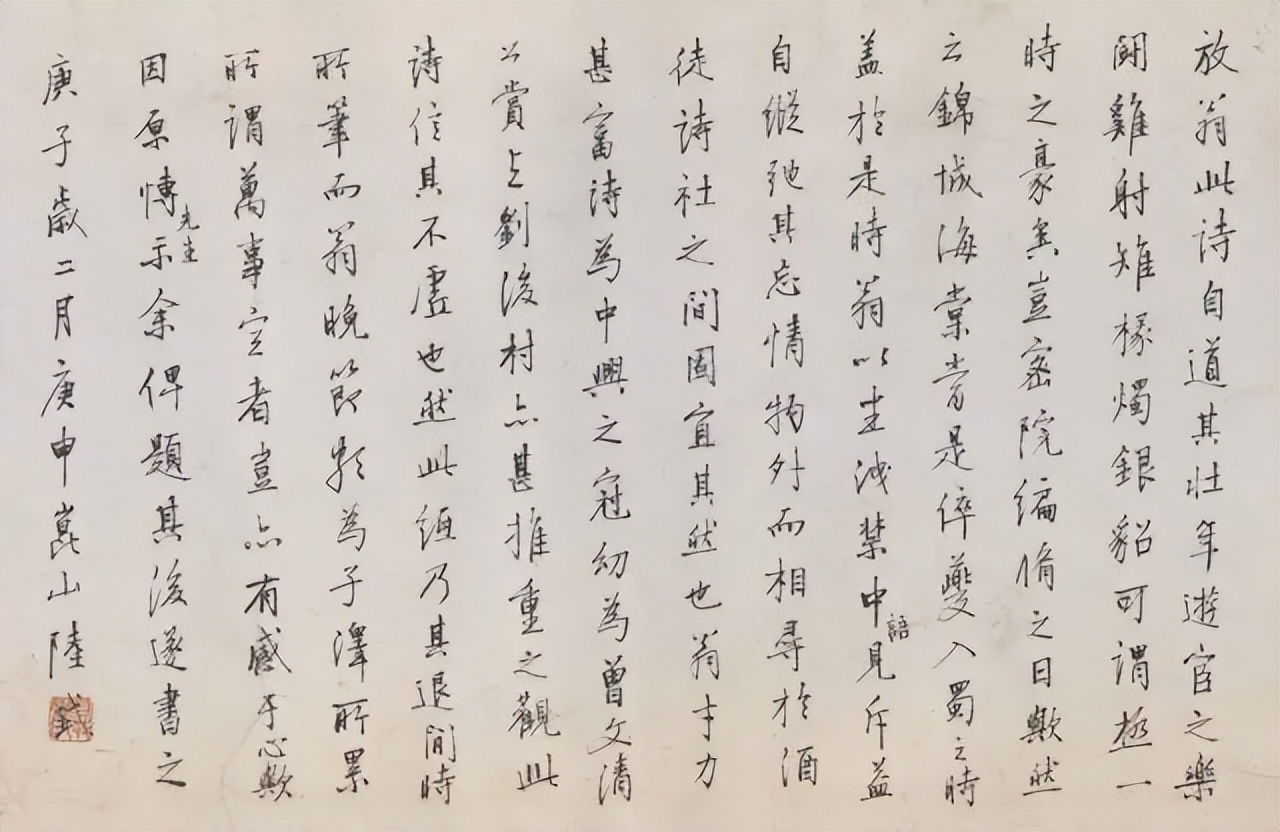 放翁此诗自道其壮年遊官之樂
鬭雞射雉椽燭銀貂可謂極一
時之豪矣豈密院編脩之日歟然
云錦城海棠常是倅夔入蜀之時
盖於是時翁以坐泄禁中語見斥益
自縱弛其忘情物外而相尋於酒
徒诗社之間固宜其然也翁才力
甚富诗為中興之冠幼為曾文清
公賞上劉後村亦甚推重之觀此
诗信其不虚也然此紙乃其退閒時
所筆而翁晚節頗為子澤所累
所謂萬事空者豈亦有感于心歟
因原博先生示余俾題其後遂書之
庚子歲二月庚申崑山陸釴